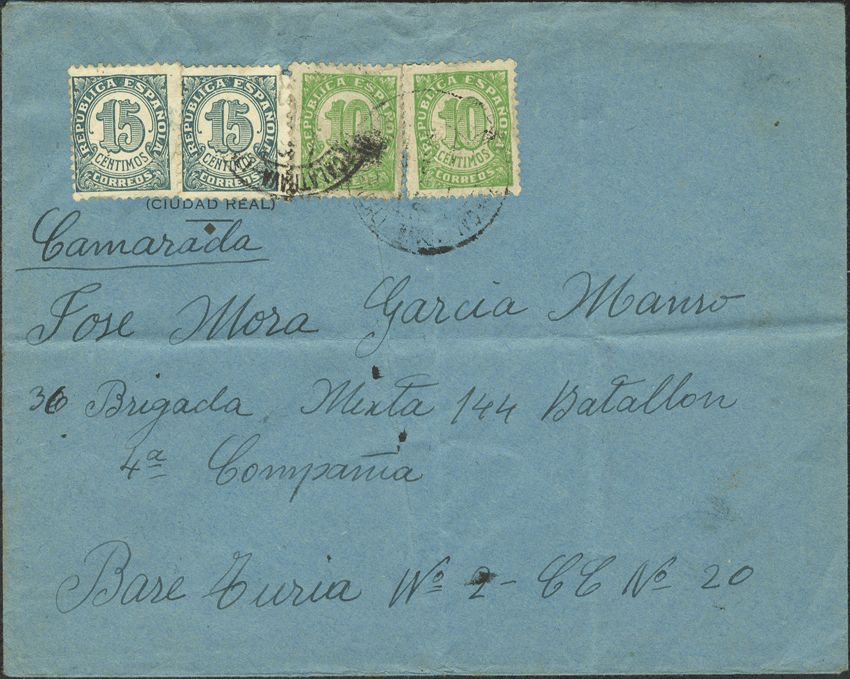 REPUBLICA ESPAÑOLA 15 CENTIMOS CORREOS
REPUBLICA ESPAÑOLA 15 CENTIMOS CORREOS
REPUBLICA ESPAÑOLA 10 CENTIMOS CORREOS
REPUBLICA ESPAÑOLA 10 CENTIMOS CORREOS
CALATRAVA
(CIUDAD REAL)
Camarada
Jose Mora Garcia Manso
36 Brigada Mixta 144 Batallon
4ª Compañia
Base Turia Nº 2 - CC Nº 20